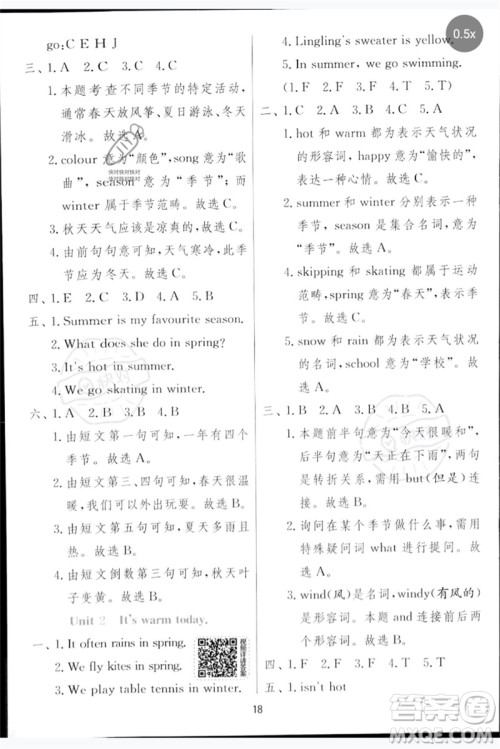 go:C E H J
三、1. A  2. C  3. C  4. C
1. 本题考查不同季节的特定活动,
通常春天放风筝、夏日游泳、冬天
滑冰。故选A。
2. colour 意为“颜色”,song 意为“歌
曲”,season 意为“季节”;而
winter 属于季节范畴。故选C。
3. 秋天天气应该是凉爽的,故选C。
4. 由前句句意可知,天气寒冷,此季节
应为冬天。故选C。
四、1. E  2. C  3. D  4. A  5. B
五、1. Summer is my favourite season.
2. What does she do in spring?
3. It's hot in summer.
4. We go skating in winter.
六、1. A  2. B  3. B  4. B
1. 由短文第一句可知,一年有四个
季节。故选A。
2. 由短文第三、四句可知,春天很温
暖,我喜欢出去玩耍。故选B。
3. 由短文第五句可知,夏天多雨且
热。故选B。
4. 由短文倒数第三句可知,秋天叶
子变黄。故选B。
Unit 2  It's warm today.
一、1. It often rains in spring.
2. We fly kites in spring.
3. We play table tennis in winter.
视频详讲答案
4. Lingling's sweater is yellow.
5. In summer, we go swimming.
(1. F  2. F  3. F  4. T  5. T)
二、1. C  2. C  3. B  4. C  5. A
1. hot 和 warm 都为表示天气状况
的形容词,happy 意为“愉快的”,
表示一种心情。故选C。
2. summer 和 winter 分别表示一种
季节,season 是集合名词,意为
“季节”。故选C。
4. skipping 和 skating 都属于运动
范畴,spring 意为“春天”。故
选C。
5. snow 和 rain 都为表示天气状况
的名词,school 意为“学校”。故
选A。
三、1. B  2. B  3. A  4. B  5. A
1. 本题前半句意为“今天很暖和”,
后半句意为“天正在下雨”,两句
是转折关系,需用 but(但是)连
接。故选B。
2. 询问在某个季节做什么事,需用
特殊疑问词 what 进行提问。故
选B。
3. wind(风)是名词,windy(有风的)
是形容词。本题 and 连接的应
是形容词。故选A。
四、1. A  2. B  3. B  4. B  5. A
五、1. isn't hot
18
0.5x
快对快对快对
答案圈
MXQE.COM